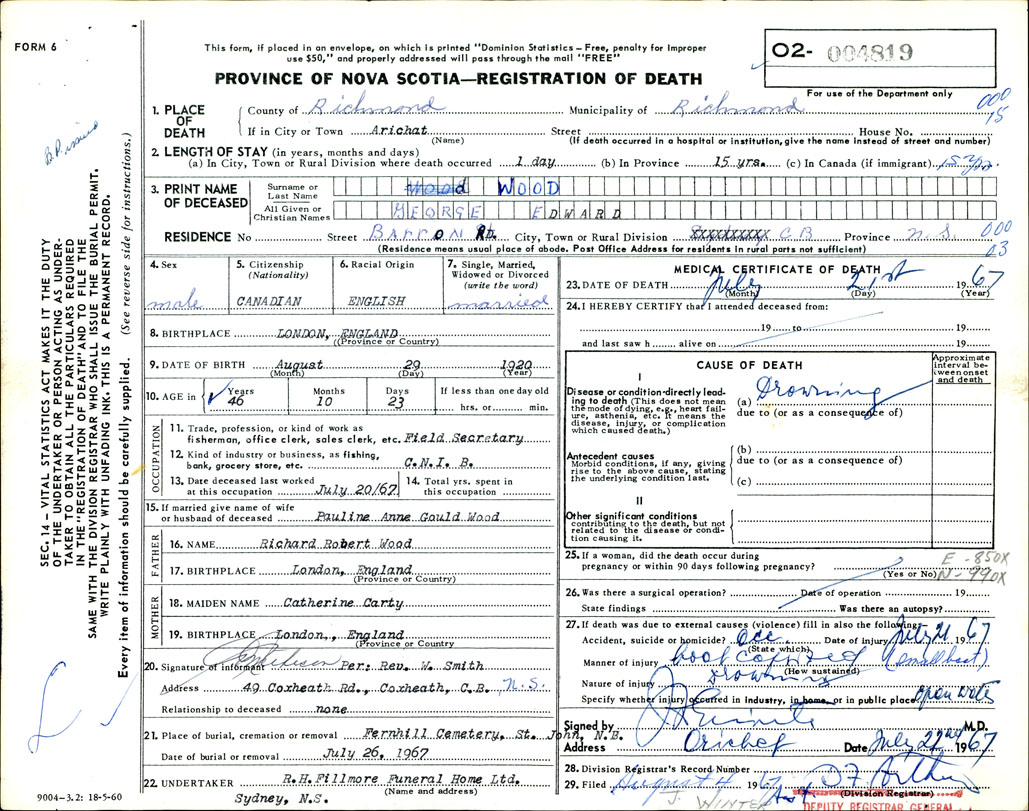 FORM 6
This form, if placed in an envelope, on which is printed "Dominion Statistics – Free, penalty for Improper
use $50," and properly addressed will pass through the mail "FREE"
PROVINCE OF NOVA SCOTIA—REGISTRATION OF DEATH
02- 004819
For use of the Department only
000
15
1. PLACE OF DEATH
County of Richmond Municipality of Richmond
If in City or Town Arichat Street House No.
(Name) (If death occurred in a hospital or institution, give the name instead of street and number)
2. LENGTH OF STAY (in years, months and days)
(a) In City, Town or Rural Division where death occurred 1 day (b) In Province 15 yrs. (c) In Canada (if immigrant) 15 yrs.
3. PRINT NAME OF DECEASED
Surname or Last Name Wood WOOD
All Given or Christian Names GEORGE EDWARD
RESIDENCE No Street BARRON Rd. City, Town or Rural Division C.B. Province N.S.
000
03
(Residence means usual place of abode. Post Office Address for residents in rural parts not sufficient)
4. Sex male
5. Citizenship (Nationality) CANADIAN
6. Racial Origin ENGLISH
7. Single, Married, Widowed or Divorced (write the word) married
8. BIRTHPLACE LONDON, ENGLAND
(Province or Country)
9. DATE OF BIRTH August 29 1920
(Month) (Day) (Year)
10. AGE in Years 46 Months 10 Days 23 If less than one day old hrs. or min.
OCCUPATION
11. Trade, profession, or kind of work as
fisherman, office clerk, sales clerk, etc. Field Secretary
12. Kind of industry or business, as fishing,
bank, grocery store, etc. C.N.I. B.
13. Date deceased last worked
at this occupation July 20/67
14. Total yrs. spent in
this occupation
15. If married give name of wife
or husband of deceased Pauline Anne Gould Wood
FATHER
16. NAME Richard Robert Wood
17. BIRTHPLACE London, England
(Province or Country)
MOTHER
18. MAIDEN NAME Catherine Carty
19. BIRTHPLACE London, England
(Province or Country
20. Signature of informant Per: Rev. W. Smith
Address 49 Coxheath Rd., Coxheath, C.B. N.S.
Relationship to deceased none
21. Place of burial, cremation or removal Fernhill Cemetery, St. John, N.B.
Date of burial or removal July 26, 1967
22. UNDERTAKER R.H.Fillmore Funeral Home Ltd.
(Name and address)
Sydney, N.S.
9004-3.2: 18-5-60
MEDICAL CERTIFICATE OF DEATH
23. DATE OF DEATH July 21st 1967
(Month) (Day) (Year)
24. I HEREBY CERTIFY that I attended deceased from:
19 to 19
and last saw h alive on 19
CAUSE OF DEATH
Approximate interval between onset and death
I
Disease or condition directly leading to death (This does not mean
the mode of dying, e.g., heart failure, asthenia, etc. It means the
disease, injury, or complication
which caused death.)
(a) Drowning
due to (or as a consequence of)
Antecedent causes
Morbid conditions, if any, giving
rise to the above cause, stating
the underlying condition last.
(b)
due to (or as a consequence of)
(c)
II
Other significant conditions
contributing to the death, but not
related to the disease or condition causing it.
25. If a woman, did the death occur during
pregnancy or within 90 days following pregnancy?
(Yes or No)
E - 850X
N - 990X
26. Was there a surgical operation? Date of operation 19
State findings Was there an autopsy?
27. If death was due to external causes (violence) fill in also the following:
Accident, suicide or homicide? acc Date of injury July 21 1967
(State which)
Manner of injury boat capsized (small boat)
(How sustained)
Nature of injury Drowning
Specify whether injury occurred in industry, in home, or in public place open water
Signed by M.D.
Address Arichat Date July 22 1967
28. Division Registrar's Record Number
29. Filed August 4 1967
(Division Registrar)
J. WINTER
DEPUTY REGISTRAR GENERAL
SEC. 14 – VITAL STATISTICS ACT MAKES IT THE DUTY
OF THE UNDERTAKER OR PERSON ACTING AS UNDERTAKER TO OBTAIN ALL THE PARTICULARS REQUIRED
IN THE "REGISTRATION OF DEATH" AND TO FILE THE
SAME WITH THE DIVISION REGISTRAR WHO SHALL ISSUE THE BURIAL PERMIT.
WRITE PLAINLY WITH UNFADING INK. THIS IS A PERMANENT RECORD.
Every item of information should be carefully supplied. (See reverse side for instructions.)